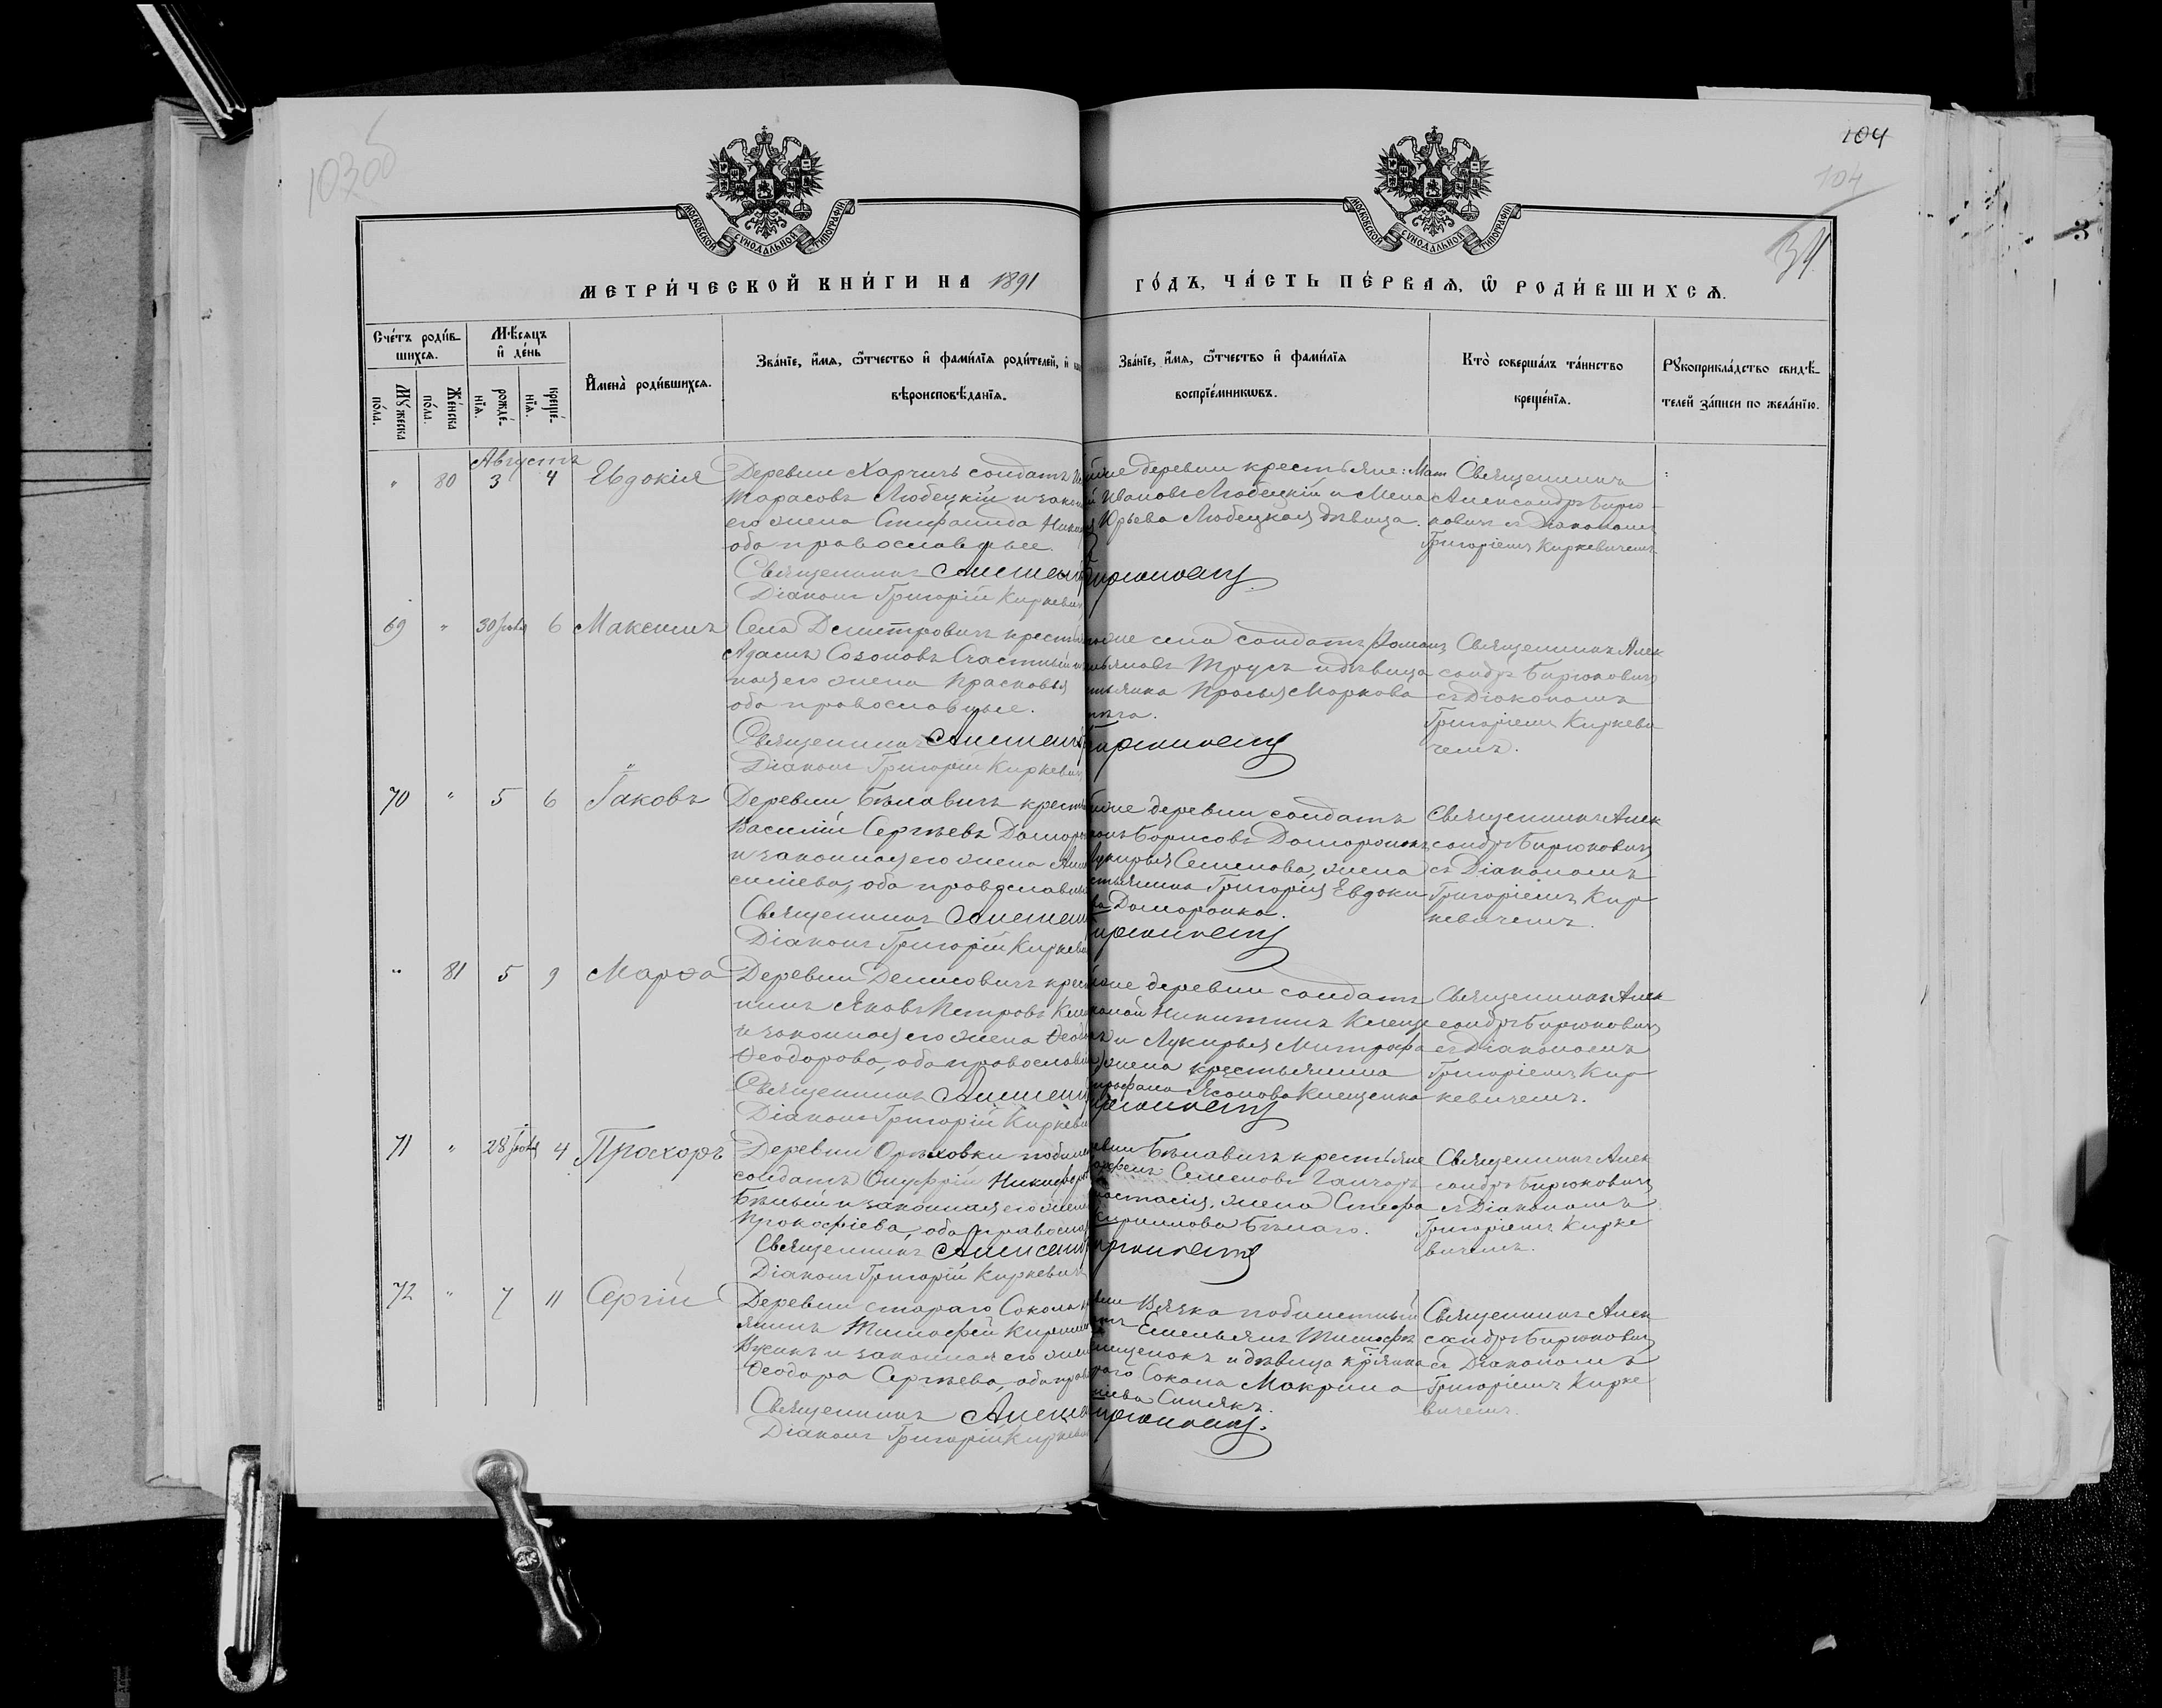 103об
104
104
31
МОСКОВСКОЙ СѴНОДАЛЬНОЙ ТИПОГРАФІИ
МОСКОВСКОЙ СѴНОДАЛЬНОЙ ТИПОГРАФІИ
МЕТРИ́ЧЕСКОЙ КНИ́ГИ НА 1891
ГО́ДЪ, ЧА́СТЬ ПЕ́РВАѦ, Ѿ РОДИ́ВШИХСѦ.
Сче́тъ роди́в-
шихсѧ.
Мѣ́сѧцъ
и҆ де́нь
Мꙋ́жеска
по́ла.
Же́нска
по́ла.
рожде́-
нїѧ.
креще́-
нїѧ.
И҆мена̀ роди́вшихсѧ.
Зва́нїе, и҆́мѧ, ѻ҆́тчество и҆ фами́лїѧ роди́телей, и҆
вѣроисповѣ́данїѧ.
Зва́нїе, и҆́мѧ, ѻ҆́тчество и҆ фами́лїѧ
воспрїе́мникѡвъ.
Кто̀ соверша́лъ та́инство
креще́нїѧ.
Рꙋкоприкла́дство свидѣ́-
телей за́писи по жела́нїю.
Августъ
" 80 3 4 Евдокія
Деревни Харчичъ солдатъ
Тарасовъ Любецкій и закон
его жена Стефанида Ники
оба православные.
Священникъ Александ
Діаконъ Григорій Киркевич
деревни крестьяне: Мат
Ивановъ Любецкій и Мела
Юрьева Любецкая дѣвица.
Бирюковичъ
Священникъ
Александръ Бирю
ковичъ съ Діакономъ
Григоріемъ Киркевичемъ
69 " 30 Іюля 6 Максимъ
Села Дмитровичъ крестья
Адамъ Созоновъ Счастный и
ная его жена Прасковья
оба православные.
Священникъ Александ
Діаконъ Григорій Киркевич
села солдатъ Романъ
Трусъ и дѣвица
Просья Маркова
Бирюковичъ
Священникъ Алек
сандръ Бирюковичъ
съ Діакономъ
Григоріемъ Киркеви
чемъ.
70 " 5 6 Іаковъ
Деревни Бѣлавичъ крестья
Василій Сергѣевъ Доморо
и законная его жена Анн
силіева, оба православны
Священникъ Александ
Діаконъ Григорій Киркеви
деревни солдатъ
Борисовъ Доморонокъ
Лукирья Семенова, жена
Григорія Евдоки
Доморонка.
Бирюковичъ
Священникъ Алек
сандръ Бирюковичъ
съ Діакономъ
Григоріемъ Кир
кевичемъ.
" 81 5 9 Марѳа
Деревни Денисовичъ крест
нинъ Яковъ Петровъ Кле
и законная его жена Ѳеод
Ѳеодорова, оба православн
Священникъ Александ
Діаконъ Григорій Киркеви
деревни солдатъ
Никитинъ Клеще
и Лукирья Митрофа
жена крестьянина
Клещенка
Бирюковичъ
Священникъ Алек
сандръ Бирюковичъ
съ Діакономъ
Григоріемъ Кир
кевичемъ.
71 " 28 Іюля 4 Прохоръ
Деревни Орѣховки побилет
солдатъ Онуфрій Никифоро
Бѣлый и законная его жена
Прокофіева, оба православ
Священникъ Александ
Діаконъ Григорій Киркевич
Бѣлавичъ крестьяне
Семеновъ Ганчаръ
жена Стефа
Кириллова Бѣлаго.
Бирюковичъ
Священникъ Алек
сандръ Бирюковичъ
съ Діакономъ
Григоріемъ Кирке
вичемъ.
72 " 7 11 Сергій
Деревни Стараго Сокола к
янинъ Тимофей Кирил
Жукъ и законная его жен
Ѳеодора Сергѣева, оба прав
Священникъ Александ
Діаконъ Григорій Киркевич
Вяжа побилетный
Емельянъ Тимофе
и дѣвица кр֊янка
Сокола Макрина
Синякъ.
Бирюковичъ.
Священникъ Алек
сандръ Бирюковичъ
съ Діакономъ
Григоріемъ Кирке
вичемъ.